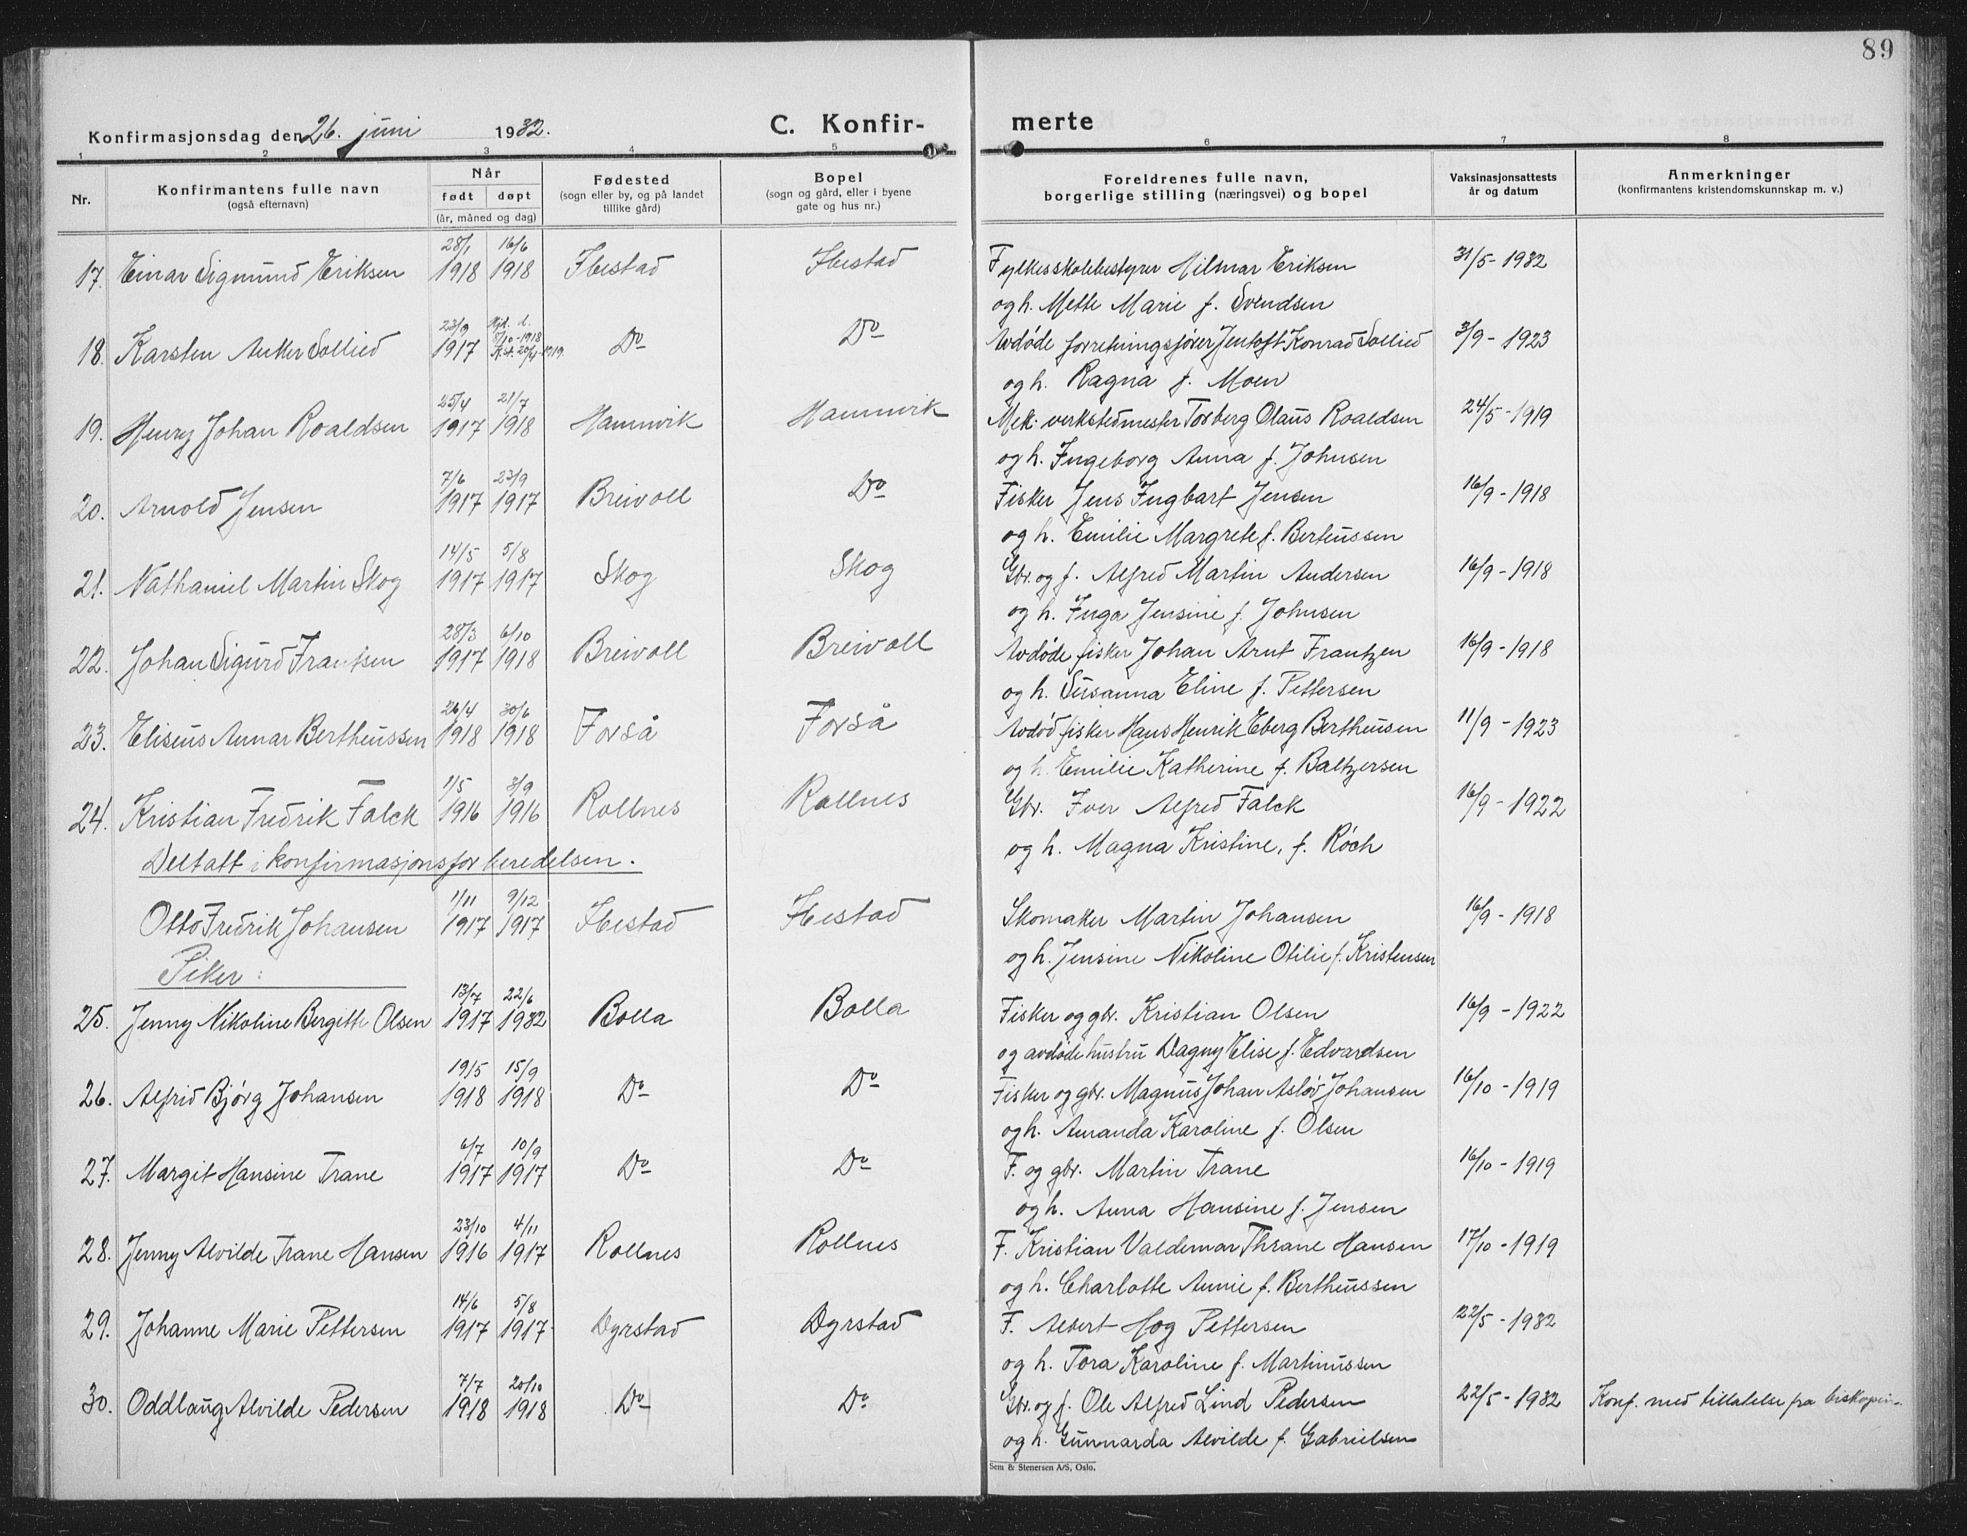 89
Konfirmasjonsdag den 26. juni 1932.
C. Konfir-merte
1 2 3 4 5 6 7 8
Nr.
Konfirmantens fulle navn
(også efternavn)
Når
født døpt
(år, måned og dag)
Fødested
(sogn eller by, og på landet
tillike gård)
Bopel
(sogn og gård, eller i byene
gate og hus nr.)
Foreldrenes fulle navn,
borgerlige stilling (næringsvei) og bopel
Vaksinasjonsattests
år og datum
Anmerkninger
(konfirmantens kristendomskunnskap m. v.)
17. Einar Sigmund Eriksen 28/1 1918 16/6 1918 Ibestad Ibestad Fylkesskolebestyrer Hilmar Eriksen 31/5-1932
og h. Mette Marie f. Svendsen
18. Karsten Anker Sollied 23/9 1917 Hjd. d. 8/10-1918 Do Do Avdøde forretningsfører Jentoft Konrad Sollied 3/9-1923
og h. Ragna f. Moen
19. Henry Johan Roaldsen 25/4 1917 21/7 1918 Hamnvik Hamnvik Mek. verkstedmester Torberg Olaus Roaldsen 24/5-1919
og h. Ingeborg Anna f. Johnsen
20. Arnold Jensen 7/6 1917 23/9 1917 Breivoll Do Fisker Jens Ingbart Jensen 16/9-1918
og h. Emilie Margrete f. Berteussen
21. Nathaniel Martin Skog 14/5 1917 5/8 1917 Skog Skog Gbr. og f. Alfred Martin Andersen 16/9-1918
og h. Inga Jensine f. Johnsen
22. Johan Sigurd Frantzen 28/3 1917 6/10 1918 Breivoll Breivoll Avdøde fisker Johan Arnt Frantzen 16/9-1918
og h. Susanna Eline f. Pettersen
23. Eliseus Annar Bertheussen 26/4 1918 30/6 1918 Forså Forså Avdød fisker Hans Henrik Eberg Bertheusen 11/9-1923
og h. Emilie Katherine f. Baltzersen
24. Kristian Fredrik Falck 1/5 1916 3/9 1916 Rollnes Rollnes Gbr. Iver Alfred Falck 16/9-1922
og h. Magna Kristine, f. Røch
Deltatt i konfirmasjonsforberedelsen.
Otto Fredrik Johansen 1/11 1917 9/12 1917 Ibestad Ibestad Skomaker Martin Johansen 16/9-1918
og h. Jensine Nikoline Otilie f. Kristensen
Piker:
25. Jenny Nikoline Bergitte Olsen 13/7 1917 22/6 1932 Bolla Bolla Fisker og gbr. Kristian Olsen 16/9-1922
og avdøde hustru Dagny Elise f. Edvardsen
26. Alfrid Bjørg Johansen 19/5 1918 15/9 1918 Do Do Fisker og gbr. Magnus Johan Asløv Johansen 16/10-1919
og h. Amanda Karoline f. Olsen
27. Margit Hansine Trane 6/7 1917 10/9 1917 Do Do F. og gbr. Martin Trane 16/10-1919
og h. Anna Hansine f. Jensen
28. Jenny Alvilde Trane Hansen 23/10 1916 4/11 1917 Rollnes Rollnes F. Kristian Valdemar Thrane Hansen 17/10-1919
og h. Charlotte Annie f. Bertheussen
29. Johanne Marie Pettersen 14/6 1917 5/8 1917 Dyrstad Dyrstad F. Albert Hog Pettersen 22/5-1932
og h. Tora Karoline f. Martinussen
30. Oddlaug Alvilde Pedersen 7/7 1918 20/10 1918 Do Do Gbr. og f. Ole Alfred Lind Pedersen 22/5-1932 Konf. med tillatelse fra biskopen.
og h. Gunnarda Alvilde f. Gabrielsen
Sem & Stenersen A/S, Oslo.